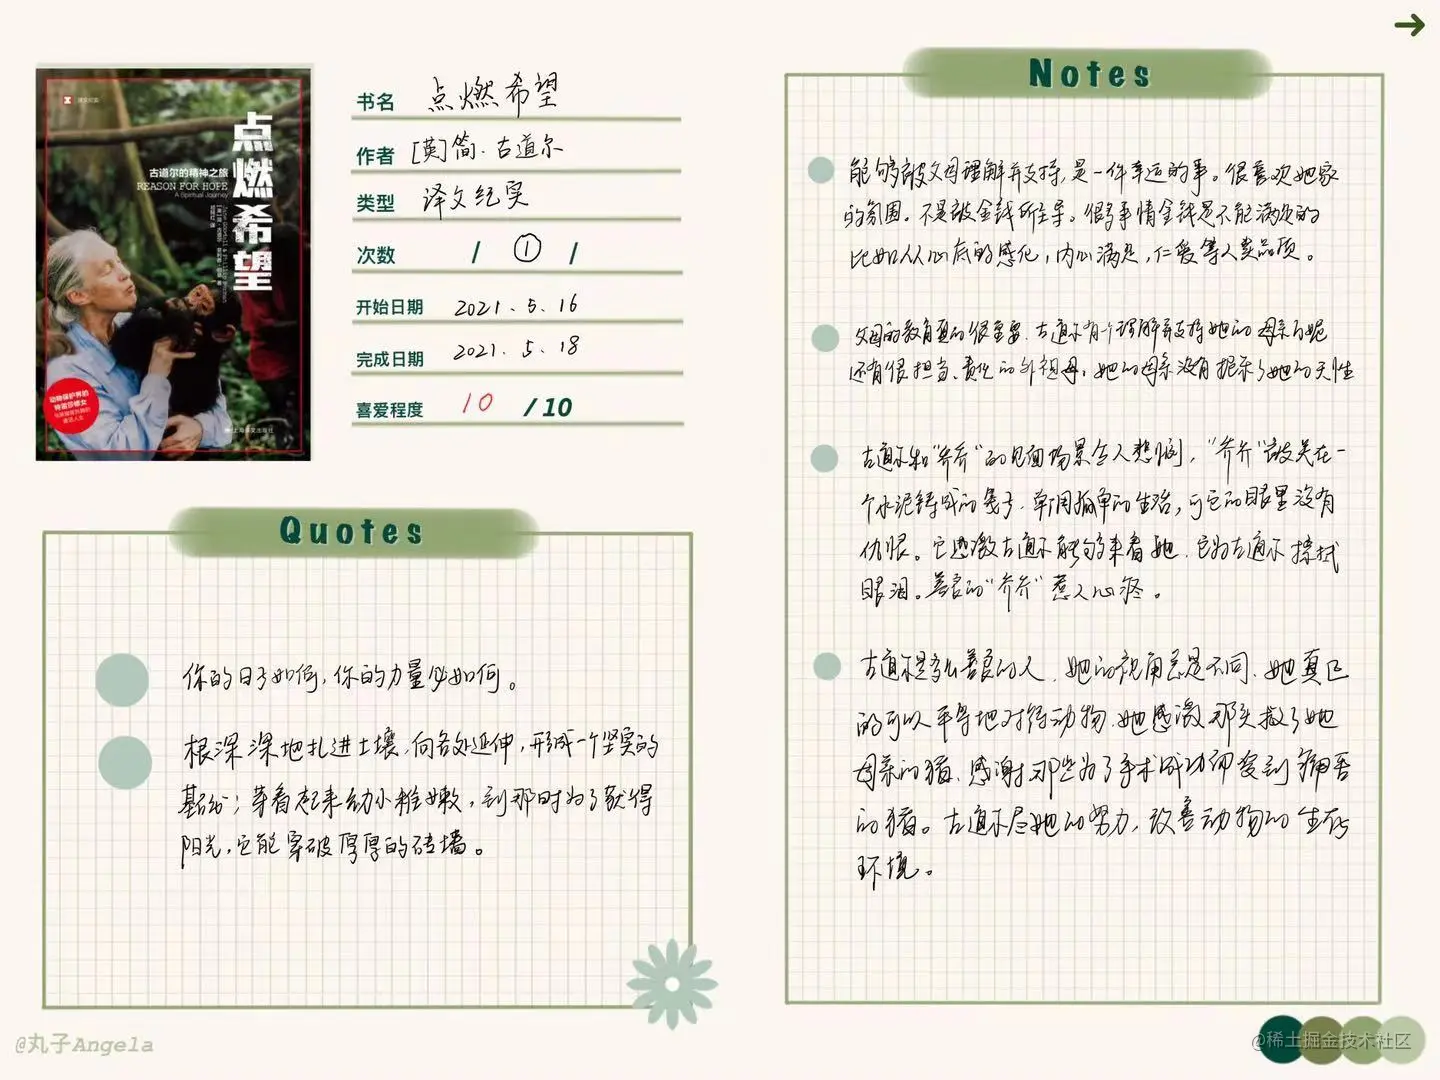 译文纪实
点燃希望
古道尔的精神之旅
REASON FOR HOPE
A Spiritual Journey
动物保护界的
特蕾莎修女
上海译文出版社
书名 点燃希望
作者 [英]简·古道尔
类型 译文纪实
次数 / ① /
开始日期 2021.5.16
完成日期 2021.5.18
喜爱程度 10 /10
Quotes
你的日子如何,你的力量必如何。
根深深地扎进土壤,向各处延伸,形成一个坚实的
基础;芽看起来幼小稚嫩,到那时为了获得
阳光,它能穿破厚厚的砖墙。
Notes
能够被父母理解并支持,是一件幸运的事。很喜欢她家
的氛围。不是被金钱所主导。很多事情金钱是不能满足的
比如从心底的感化,内心满足,仁爱等人类品质。
父母的教育真的很重要,古道尔有个理解并支持她的母亲万妮
还有很担当、责任的外祖母,她的母亲没有扼杀了她的天性
古道尔和“乔乔”的见面场景令人悲悯,“乔乔”被关在一
个水泥铸成的笼子,单调孤单的生活,可它的眼里没有
仇恨。它感激古道尔能够来看她,它为古道尔擦拭
眼泪。善良的“乔乔”惹人心疼。
古道尔是多么善良的人,她的视角总是不同,她真正
的可以平等地对待动物,她感激那头救了她
母亲的猪,感谢那些为了手术成功而受到痛苦
的猪。古道尔尽她的努力,改善动物的生存
环境。
@丸子Angela
@稀土掘金技术社区